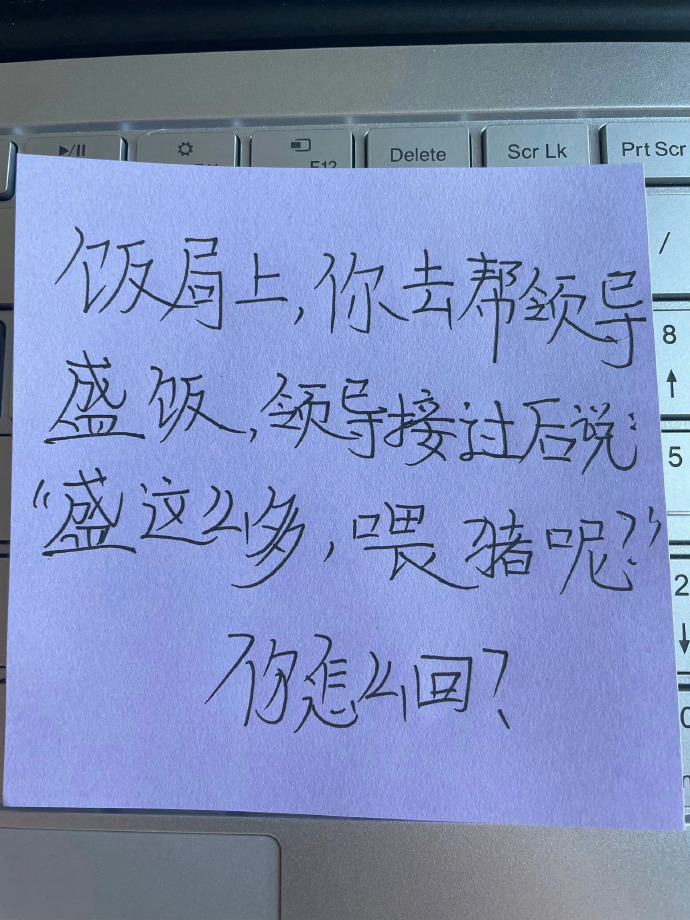 ▶/II
F12
Delete
Scr Lk
Prt Scr
/
8
↑
5
2
↓
饭局上,你去帮领导
盛饭,领导接过后说:
“盛这么多,喂猪呢?”
你怎么回?